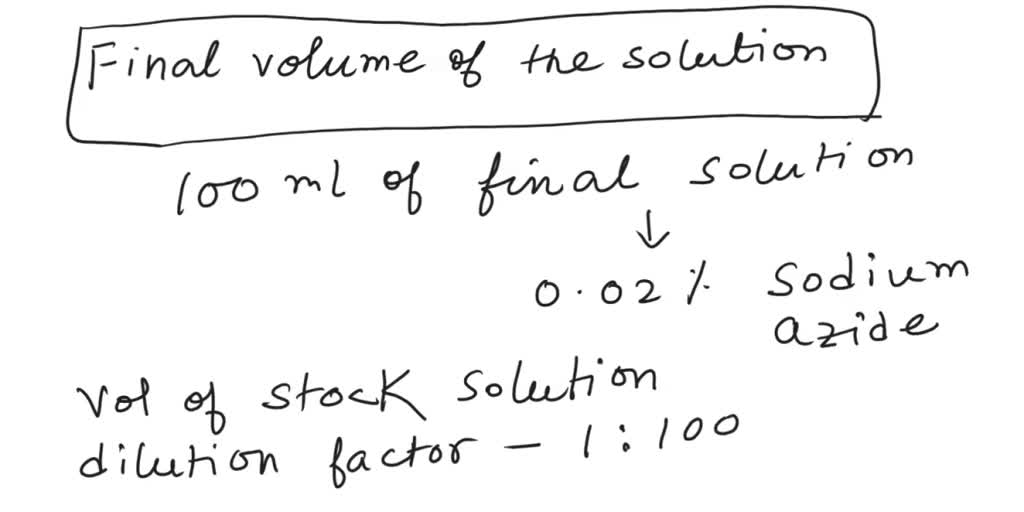 Final volume of the solution
100 ml of final solution
↓
0.02% Sodium
azide
Vol of stock solution
dilution factor - 1:100